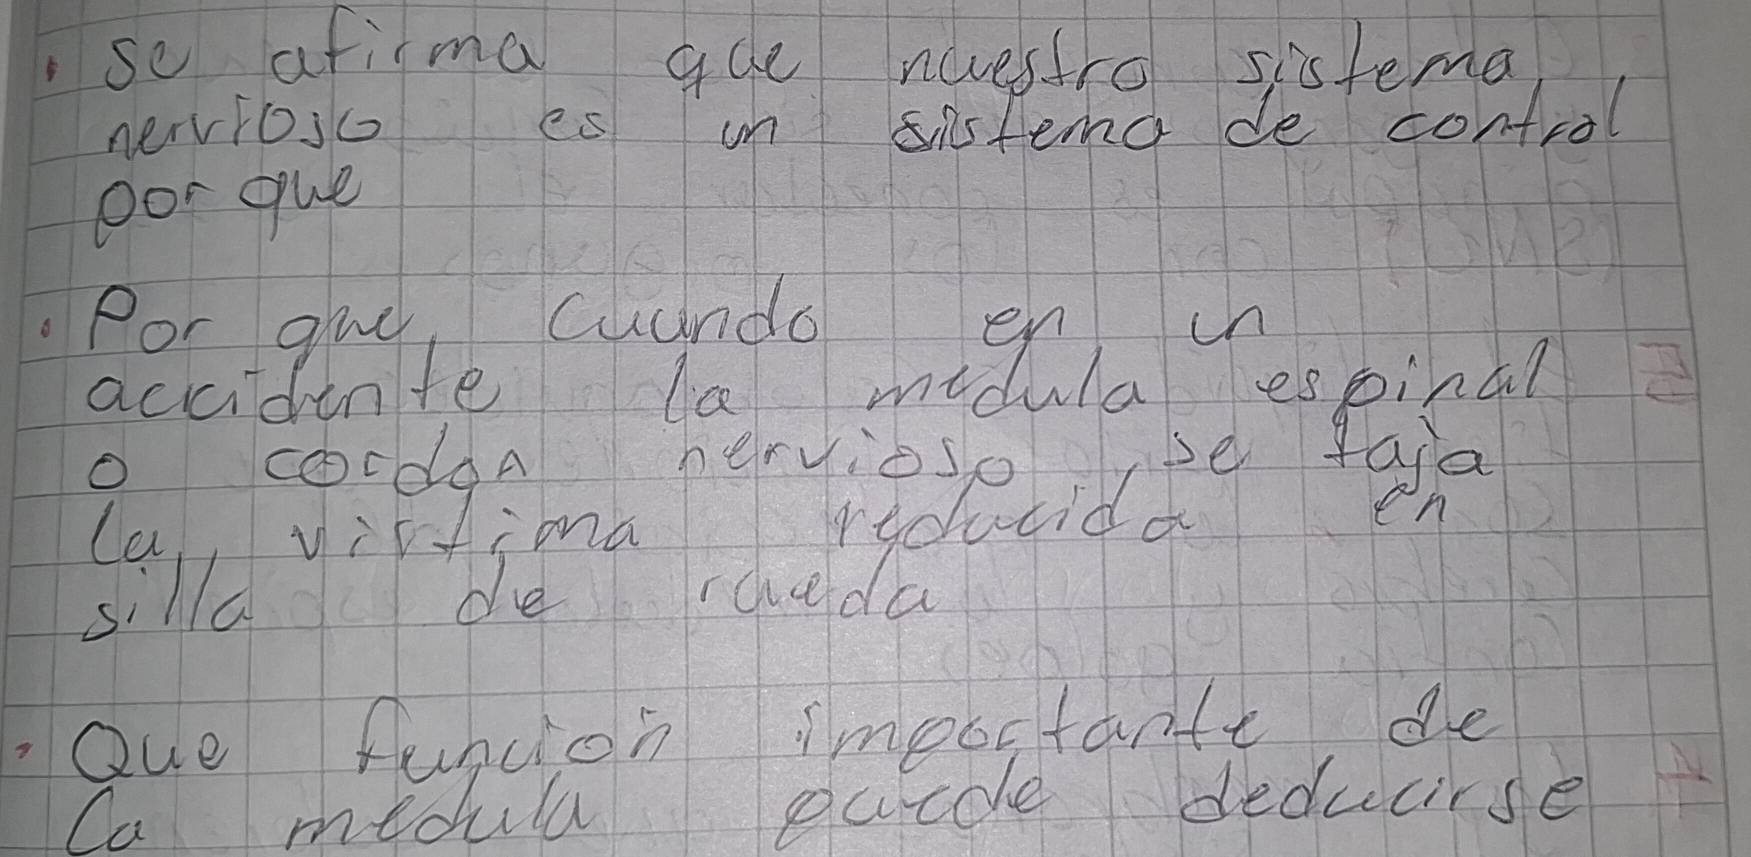 se afirma que nuestro sistema
nervioso es un sistema de control
por que
Por que, cuando en un
accidente la medula espinal
o cordon nervioso, se taja
la victima reducida en
silla de rueda
Que función importante de
la medula puede deducirse